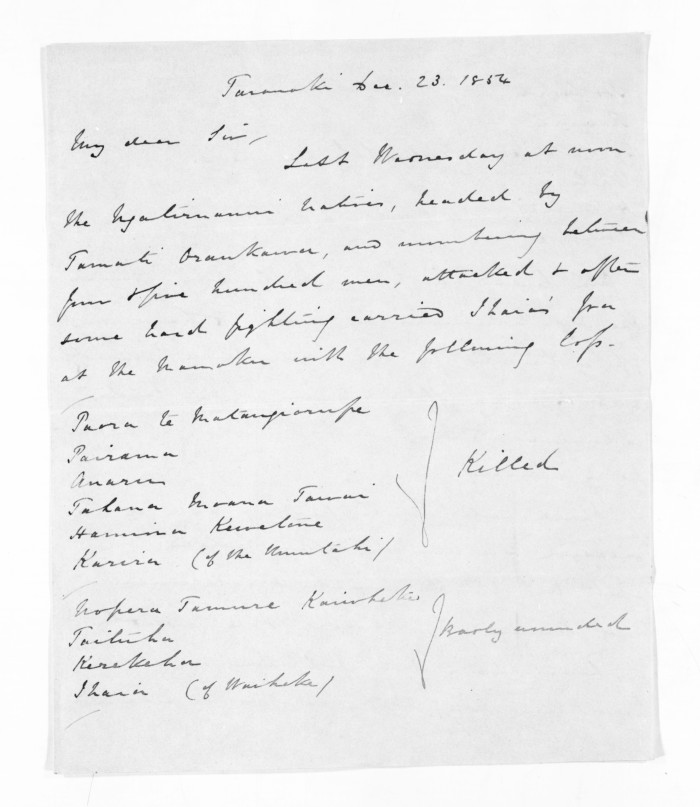 Taranaki Dec. 23. 1854
My dear Sir,
Last Wednesday at noon
the Ngatiruanui Natives, headed by
Tamati Oraukawa, and numbering between
four & five hundred men, attacked & after
some hard fighting carried Ihaia's Pa
at the with the following loss.
Paora te Matangiorupe
Pairama
Anaru
Tahana Moana Tawai
Hamiora
Karira (of the Numutahi)
Killed
Nopera Tamure
Taituha
Kerekeha
Ihaia (of Waiheke)
Badly wounded